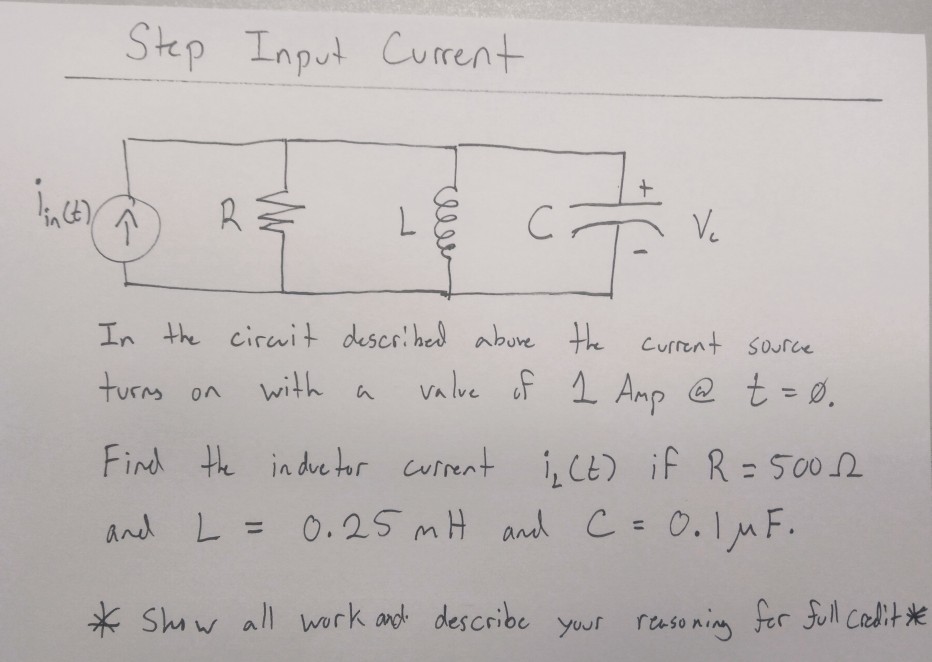 Step Input Current
i_in(t)
R
L
C
+
-
Vc
In the circuit described above the current source
turns on with a value of 1 Amp @ t = Ø.
Find the inductor current i_L(t) if R = 500 Ω
and L = 0.25 mH and C = 0.1 μF.
* Show all work and describe your reasoning for full credit *